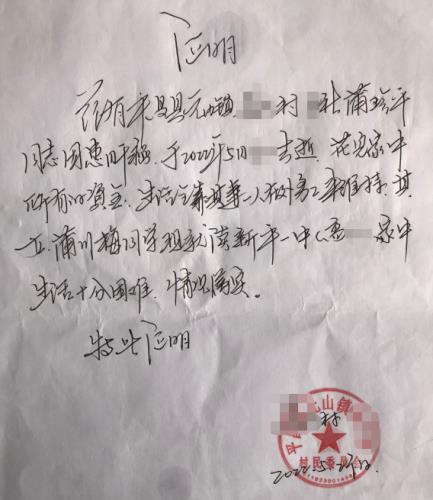 证明
兹有平昌县元山镇 村 社蒲珍平
同志因患肝癌,于2022年5月 去逝,花完家中
所有的资金,生活 其妻一人 务工来维持,其
女,蒲川梅同学现就读新平一中(高 家中
生活十分困难,情况属实。
特此证明
元山镇
村
村民委员会
2022.5.27日